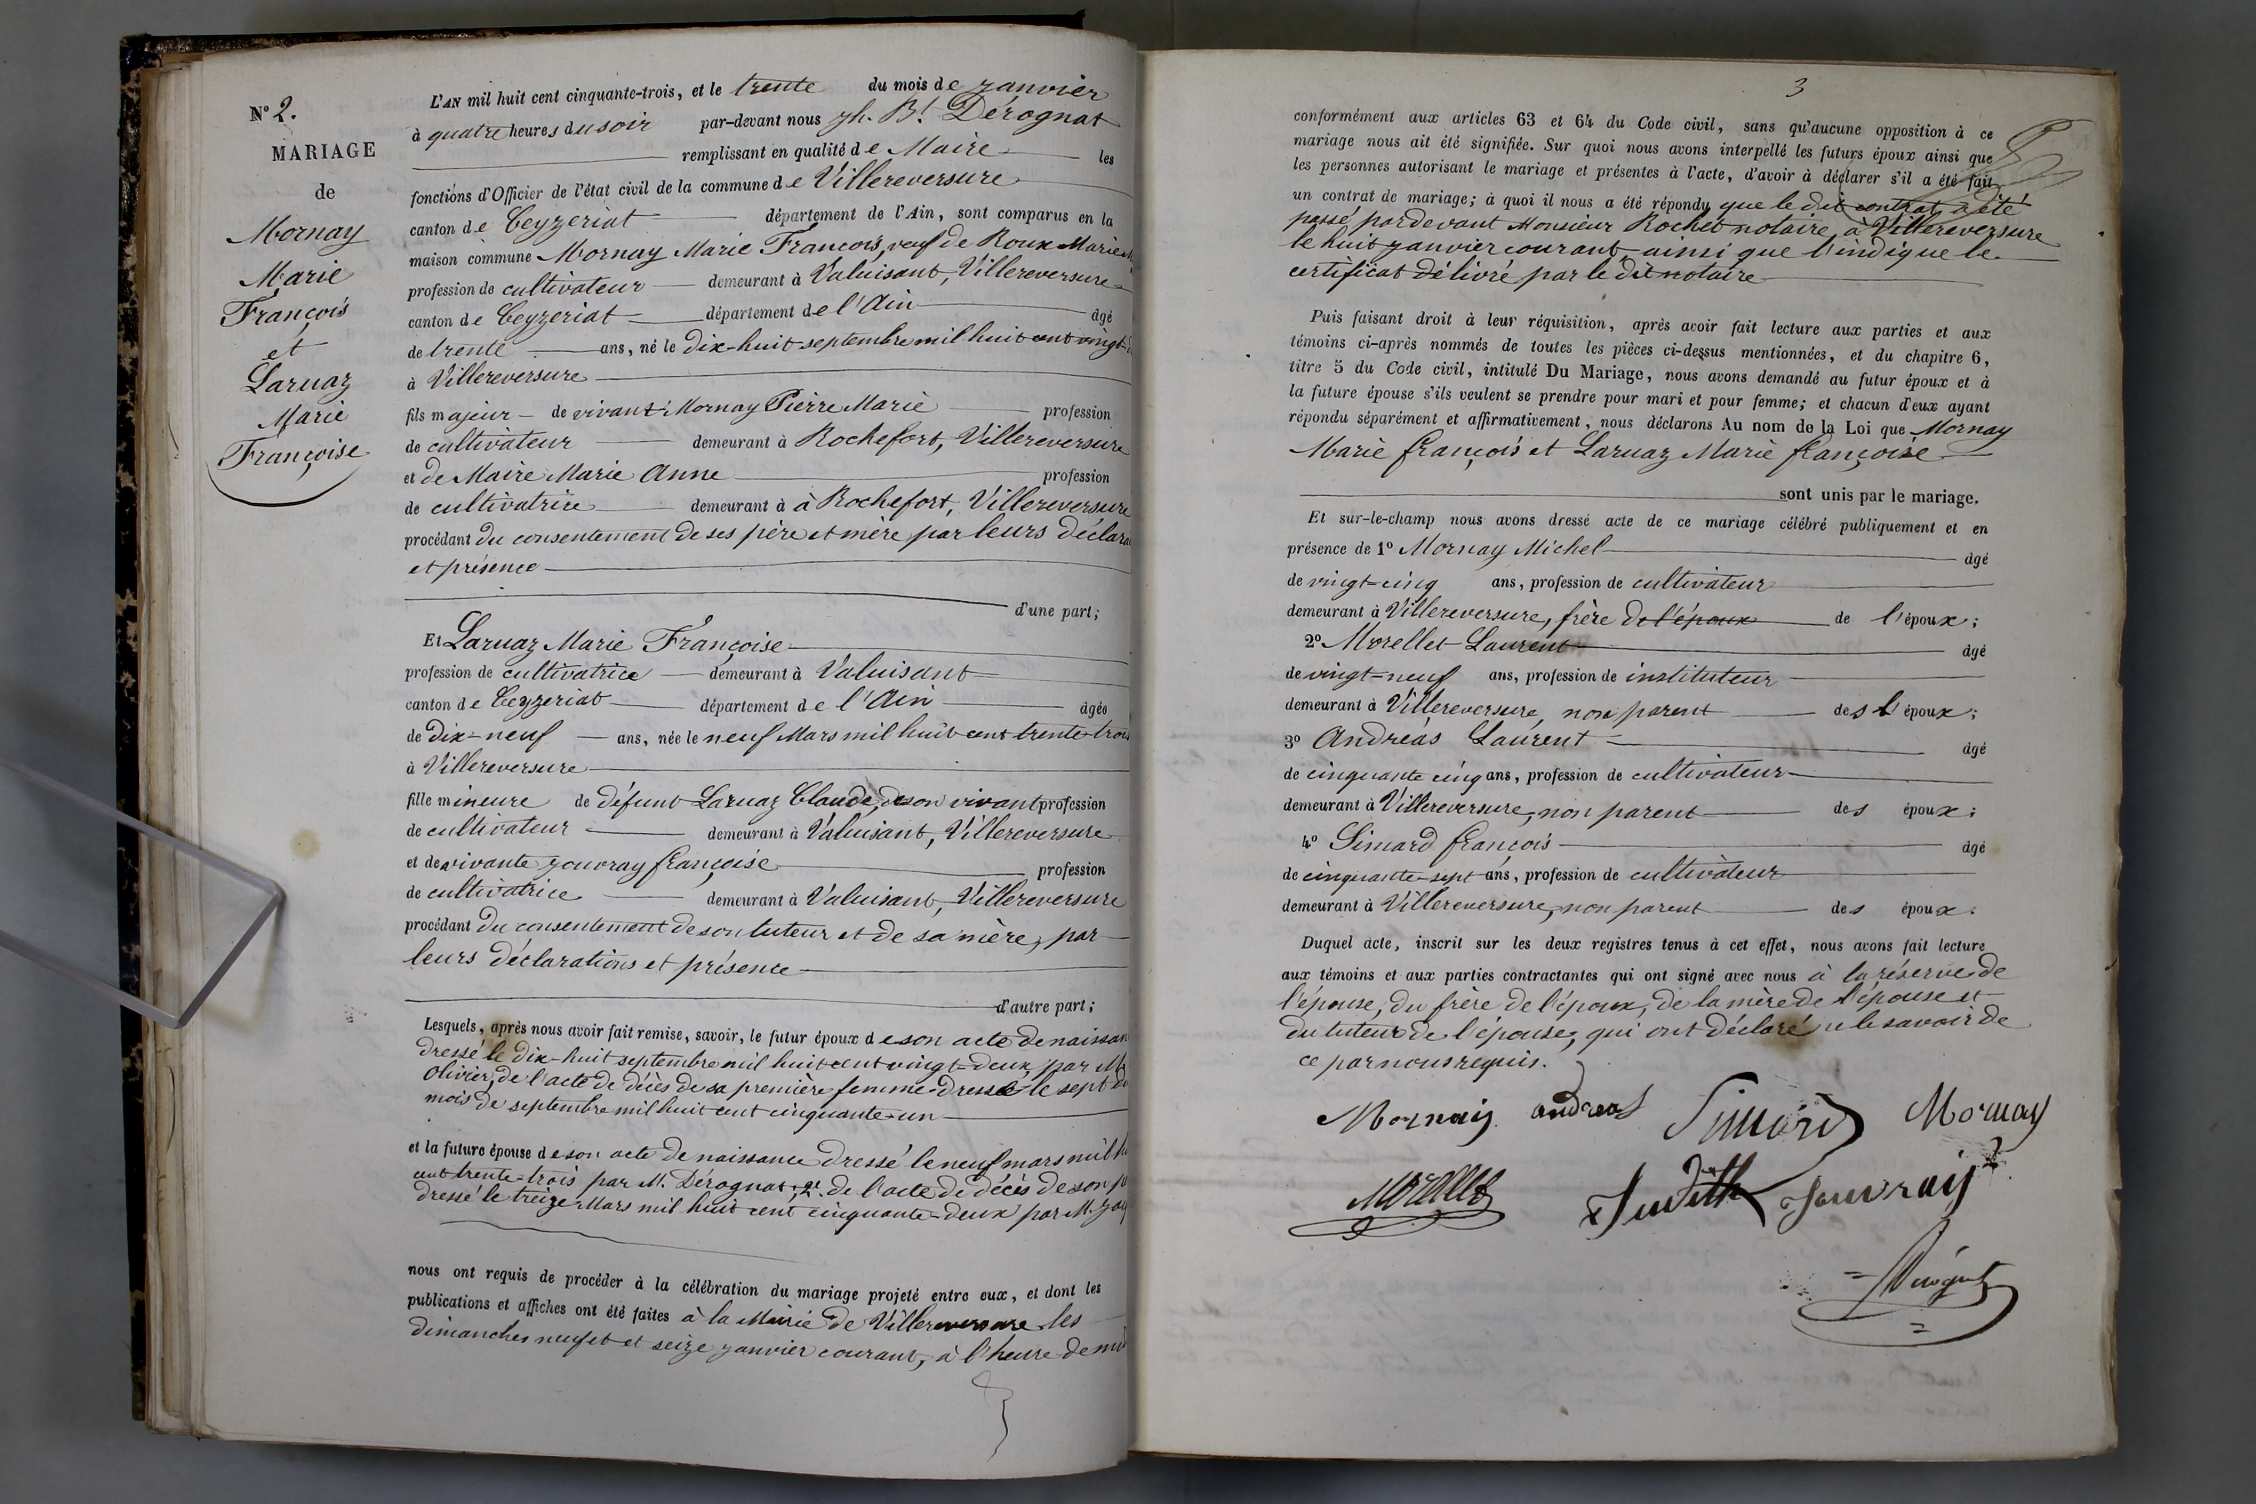 N° 2.
MARIAGE
de
Mornay
Marie
François
et
Laruaz
Marie
Françoise
L'AN mil huit cent cinquante-trois, et le trente du mois de janvier
à quatre heures du soir par-devant nous jh. Bt. Dérognat
remplissant en qualité de Maire les
fonctions d'Officier de l'état civil de la commune de Villereversure
canton de Ceyzeriat département de l'Ain, sont comparus en la
maison commune Mornay Marie François, veuf de Roux Marie
profession de cultivateur demeurant à Valuisant, Villereversure
canton de Ceyzeriat département de l'Ain âgé
de trente ans, né le dix-huit septembre mil huit cent vingt-
à Villereversure
fils majeur de vivant Mornay Pierre Marie profession
de cultivateur demeurant à Rochefort, Villereversure
et de Maire Marie Anne profession
de cultivatrice demeurant à à Rochefort, Villereversure
procédant du consentement de ses père et mère, par leurs déclara
et présence
d'une part;
Et Laruaz Marie Françoise
profession de cultivatrice demeurant à Valuisant
canton de Ceyzeriat département de l'Ain âgée
de dix-neuf ans, née le neuf Mars mil huit cent trente-trois
à Villereversure
fille mineure de défunt Laruaz Claude, de son vivant profession
de cultivateur demeurant à Valuisant, Villereversure
et de vivante jouvray françoise profession
de cultivatrice demeurant à Valuisant, Villereversure
procédant du consentement de son tuteur et de sa mère, par
leurs déclarations et présence
d'autre part;
Lesquels, après nous avoir fait remise, savoir, le futur époux de son acte de naissan
dressé le dix-huit septembre mil huit cent vingt-deux, par Mr
Olivier, de l'acte de décès de sa première femme dressé le sept du
mois de septembre mil huit cent cinquante-un
et la future épouse de son acte de naissance dressé le neuf mars mil h
cent trente-trois par M. Dérognat, 2°. de l'acte de décès de son p
dressé le treize Mars mil huit cent cinquante-deux par M.
nous ont requis de procéder à la célébration du mariage projeté entre eux, et dont les
publications et affiches ont été faites à la Mairie de Villereversure les
dimanches neuf et et seize janvier courant, à l'heure de mi
3
conformément aux articles 63 et 64 du Code civil, sans qu'aucune opposition à ce
mariage nous ait été signifiée. Sur quoi nous avons interpellé les futurs époux ainsi que
les personnes autorisant le mariage et présentes à l'acte, d'avoir à déclarer s'il a été fait
un contrat de mariage; à quoi il nous a été répondu que le dit contrat a été
passé pardevant Monsieur Rochet notaire, à Villereversure
le huit janvier courant, ainsi que l'indique le
certificat délivré par le dit notaire
Puis faisant droit à leur réquisition, après avoir fait lecture aux parties et aux
témoins ci-après nommés de toutes les pièces ci-dessus mentionnées, et du chapitre 6,
titre 5 du Code civil, intitulé Du Mariage, nous avons demandé au futur époux et à
la future épouse s'ils veulent se prendre pour mari et pour femme; et chacun d'eux ayant
répondu séparément et affirmativement, nous déclarons Au nom de la Loi que Mornay
Marie françois et Laruaz Marie françoise
sont unis par le mariage.
Et sur-le-champ nous avons dressé acte de ce mariage célébré publiquement et en
présence de 1° Mornay Michel âgé
de vingt-cinq ans, profession de cultivateur
demeurant à Villereversure, frère de l'époux de l'époux;
2° Morellet Laurent âgé
de vingt-neuf ans, profession de instituteur
demeurant à Villereversure, non parent des l'époux;
3° Andréas Laurent âgé
de cinquante cinq ans, profession de cultivateur
demeurant à Villereversure, non parent des époux;
4° Simard françois âgé
de cinquante-sept ans, profession de cultivateur
demeurant à Villereversure, non parent des époux.
Duquel acte, inscrit sur les deux registres tenus à cet effet, nous avons fait lecture
aux témoins et aux parties contractantes qui ont signé avec nous à la réserve de
l'épouse, du frère de l'époux, de la mère de l'épouse et
du tuteur de l'épouse, qui ont déclaré ne le savoir de
ce par nous requis.
Mornay andreas Simard Mornay
Morellet Judith Jouvray
Dérognat